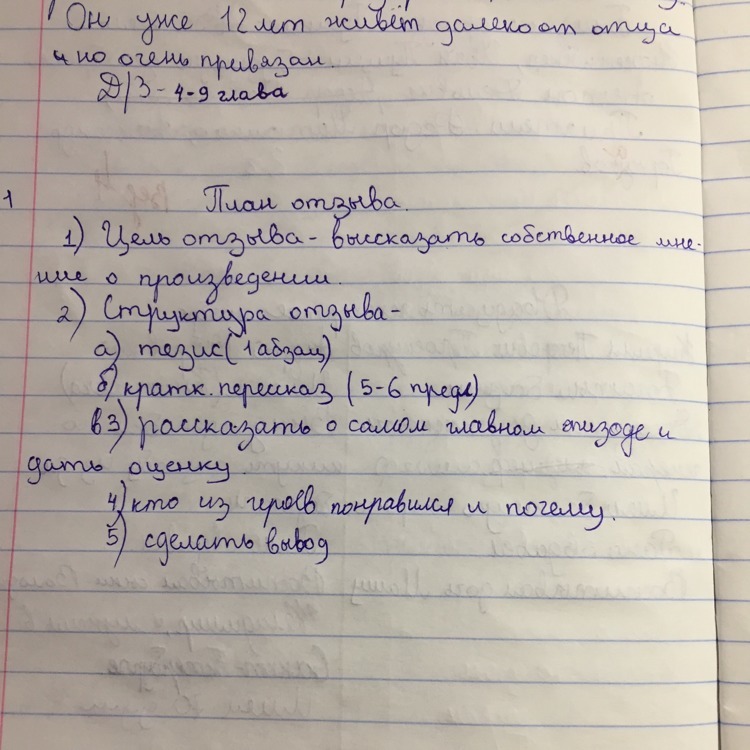 Он уже 12 лет живёт далеко от отца
но очень привязан.
Д/З - 4-9 глава
1 План отзыва.
1) Цель отзыва - выссказать собственное мне-
ние о произведении.
2) Структура отзыва-
а) тезис (1 абзац)
б) кратк. перессказ (5-6 предл)
в3) рассказать о самом главном эпизоде и
дать оценку.
4) кто из героев понравился и почему.
5) сделать вывод